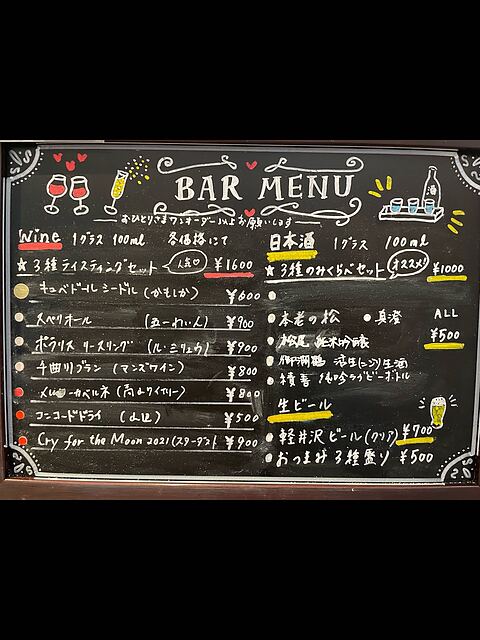 BAR MENU
おひとりさまワンオーダー以上お願いします
wine 1グラス 100ml 各価格にて
★3種テイスティングセット 人気♡ ¥1600
キュベドール シードル (かもしか) ¥600
スペリオール (五一わいん) ¥900
ポラリス リースリング (ル・ミリュウ) ¥900
千曲川ブラン (マンズワイン) ¥800
カベルネ ¥800
コンコードドライ ¥500
Cry for the Moon 2021 (スターダスト) ¥900
日本酒 1グラス 100ml
★3種のみくらべセット オススメ! ¥1000
本老の松 ・真澄 ALL
松尾 純米吟醸 ¥500
御湖鶴 生酒
積善 純吟 ボトル
生ビール
軽井沢ビール(クリア) ¥700
おつまみ3種盛り ¥500
酒